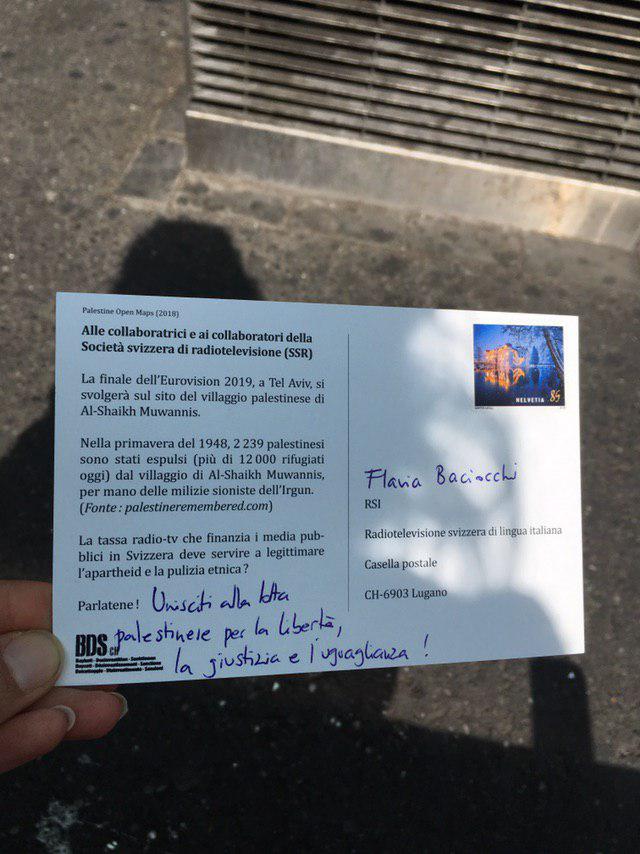 Palestine Open Maps (2018)
Alle collaboratrici e ai collaboratori della
Società svizzera di radiotelevisione (SSR)
La finale dell'Eurovision 2019, a Tel Aviv, si
svolgerà sul sito del villaggio palestinese di
Al-Shaikh Muwannis.
Nella primavera del 1948, 2 239 palestinesi
sono stati espulsi (più di 12 000 rifugiati
oggi) dal villaggio di Al-Shaikh Muwannis,
per mano delle milizie sioniste dell'Irgun.
(Fonte : palestineremembered.com)
La tassa radio-tv che finanzia i media pub-
blici in Svizzera deve servire a legittimare
l'apartheid e la pulizia etnica ?
Parlatene ! Unisciti alla lotta
palestinese per la libertà,
la giustizia e l'uguaglianza !
BDS.CH
HELVETIA 85
Flavia Baciocchi
RSI
Radiotelevisione svizzera di lingua italiana
Casella postale
CH-6903 Lugano